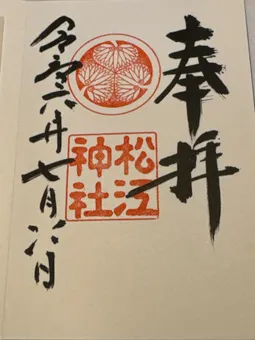 奉拝
松江
神社
令和六年七月六日